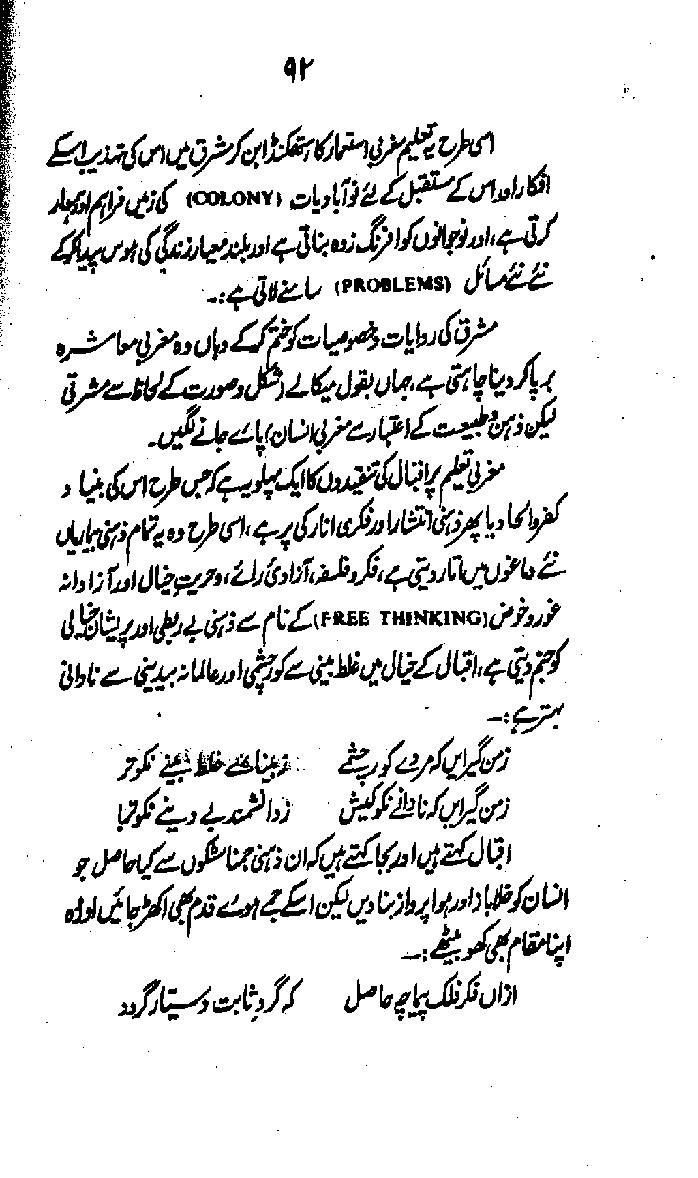 ۹۲
اسی طرح یہ تعلیم مغربی استعمار کا ہتھکنڈا بن کر مشرق میں اس کی تہذیب اسکے
افکار اور اس کے مستقبل کے لئے نوآبادیات (COLONY) کی زمین فراہم اور ہموار
کرتی ہے، اور نوجوانوں کو افرنگ زدہ بناتی ہے اور بلند معیار زندگی کی ہوس پیدا کرکے
نئے نئے مسائل (PROBLEMS) سامنے لاتی ہے:۔
مشرق کی روایات و خصوصیات کو ختم کرکے وہاں وہ مغربی معاشرہ
برپا کر دینا چاہتی ہے، جہاں بقول میکالے (شکل و صورت کے لحاظ سے مشرقی
لیکن ذہن و طبیعت کے اعتبار سے مغربی انسان) پائے جانے لگیں۔
مغربی تعلیم پر اقبال کی تنقیدوں کا ایک پہلو یہ ہے کہ جس طرح اس کی بنیاد
کفر و الحاد یا پھر ذہنی انتشار اور فکری انارکی پر ہے، اسی طرح وہ یہ تمام ذہنی بیماریاں
نئے دماغوں میں اتار دیتی ہے، فکر و فلسفہ، آزادیٔ رائے، وحریتِ خیال اور آزادانہ
غور و خوض (FREE THINKING) کے نام سے ذہنی بے ربطی اور پریشان خیالی
کو جنم دیتی ہے، اقبال کے خیال میں غلط بینی سے کور چشمی اور عالمانہ بیدینی سے نادانی
بہتر ہے:۔
زمن گیر ایں کہ مردے کور چشمے زبینائے غلط بینے نکوتر
زمن گیر ایں کہ نادانے نکو کیش زدانشمند بے دینے نکوتر!
اقبال کہتے ہیں اور بجا کہتے ہیں کہ ان ذہنی جمناسٹکوں سے کیا حاصل جو
انسان کو خلاباز اور ہوا پرواز بنا دیں لیکن اسکے جمے ہوئے قدم بھی اکھڑ جائیں اور وہ
اپنا مقام بھی کھو بیٹھے:۔
ازاں فکر فلک پیما چہ حاصل کہ گردِ ثابت و سیارہ گردد